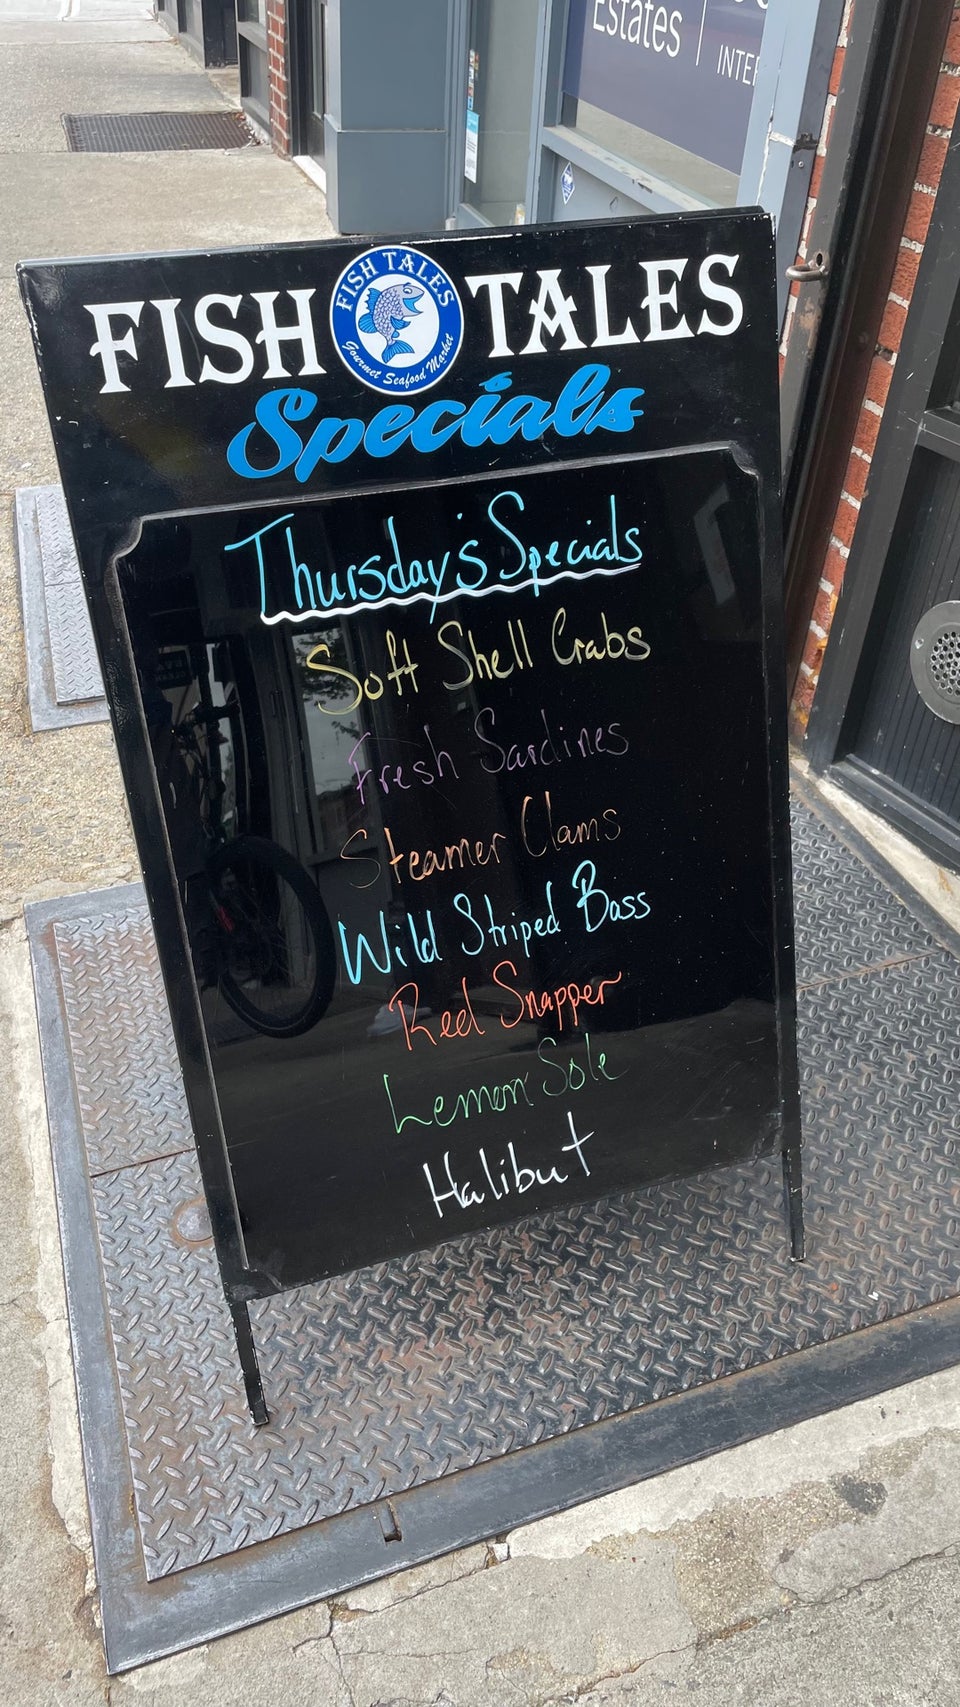 Estates
INTER
FISH TALES
FISH TALES
Gourmet Seafood Market
Specials
Thursday's Specials
Soft Shell Crabs
Fresh Sardines
Steamer Clams
Wild Striped Bass
Red Snapper
Lemon Sole
Halibut